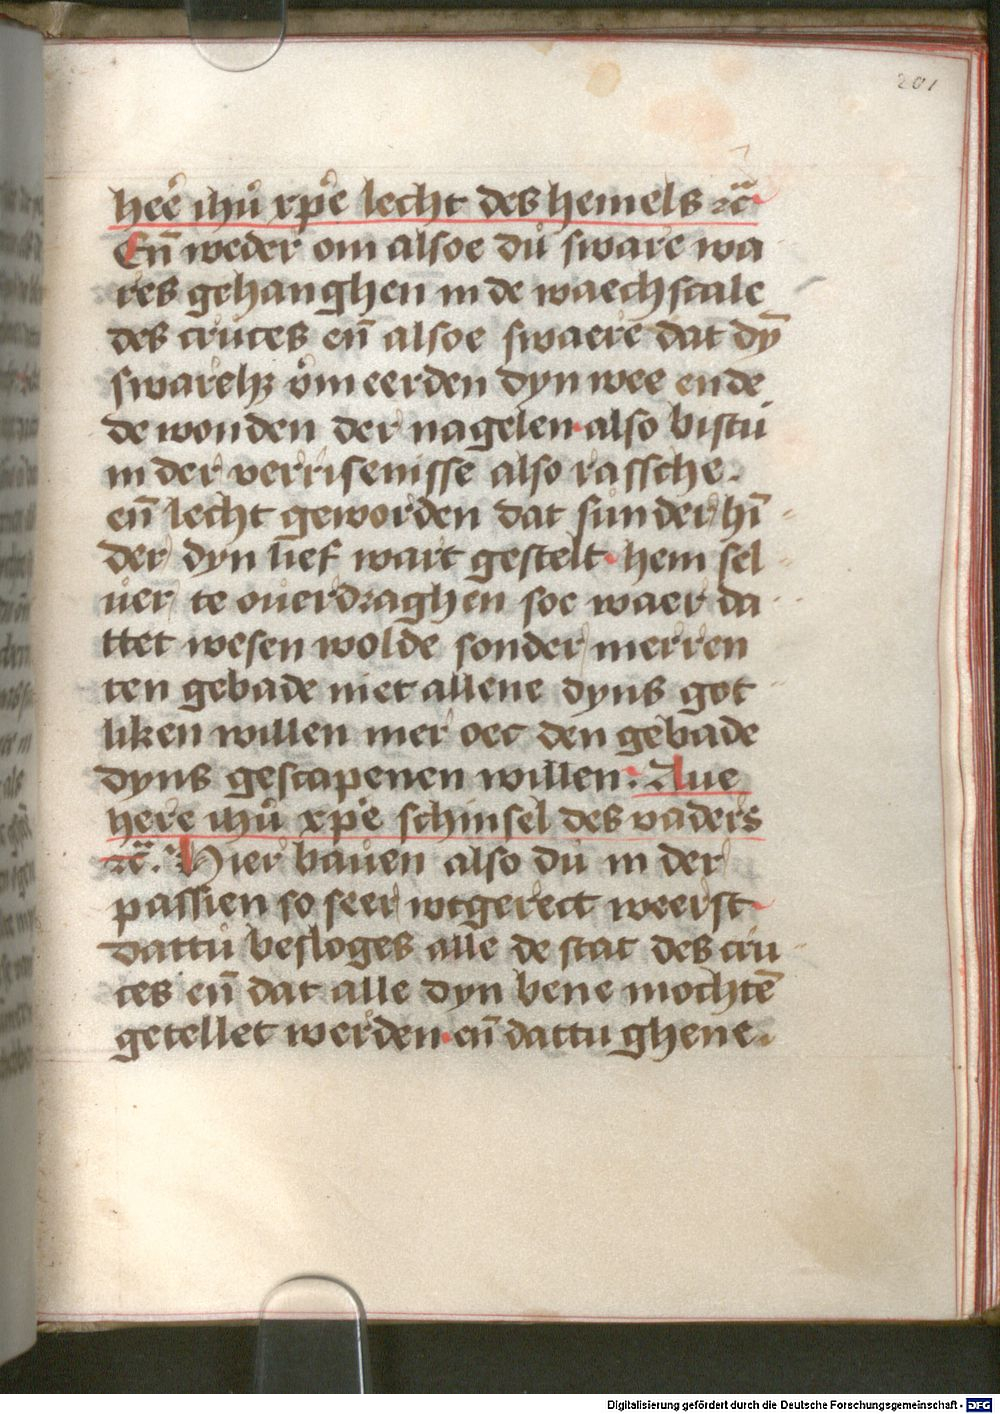 201
heẽ ihũ xpẽ lecht des hemels ⁊c̃
Eñ weder om alsoe dů sware wa
res gehanghen in de waechscale
des cruces eñ alsoe swaere dat dȳ
swarehꝫ ům eerden dyn wee ende
de wonden der nagelen· also bistů
in der verrisenisse also rassche.
eñ lecht geworden dat sunder hī
der dyn lief wart gestelt· hem sel
uer te ouerdraghen soe waer da
ttet wesen wolde sonder merren
ten gebade niet allene dyns got
liken willen mer oec den gebade
dyns gescapenen willen: Aue
here ihũ xpẽ schinsel des vaders
⁊c̃. Hier bauen also du in der
passien so seer wtgerect weerst
dattu besloges alle de stat des cru
ces eñ dat alle dyn bene mochtē
getellet werden· eñ dattu ghene.
Digitalisierung gefördert durch die Deutsche Forschungsgemeinschaft - DFG